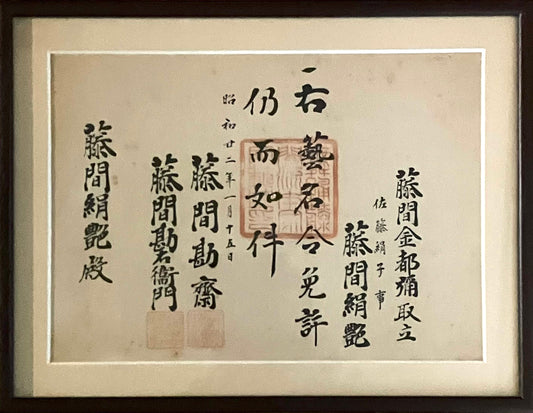 藤間金都彌取立
佐藤絹子事
藤間絹艶
一右藝名令免許
仍而如件
昭和廿二年一月十五日
藤間勘齋
藤間勘右衞門
藤間絹艶殿